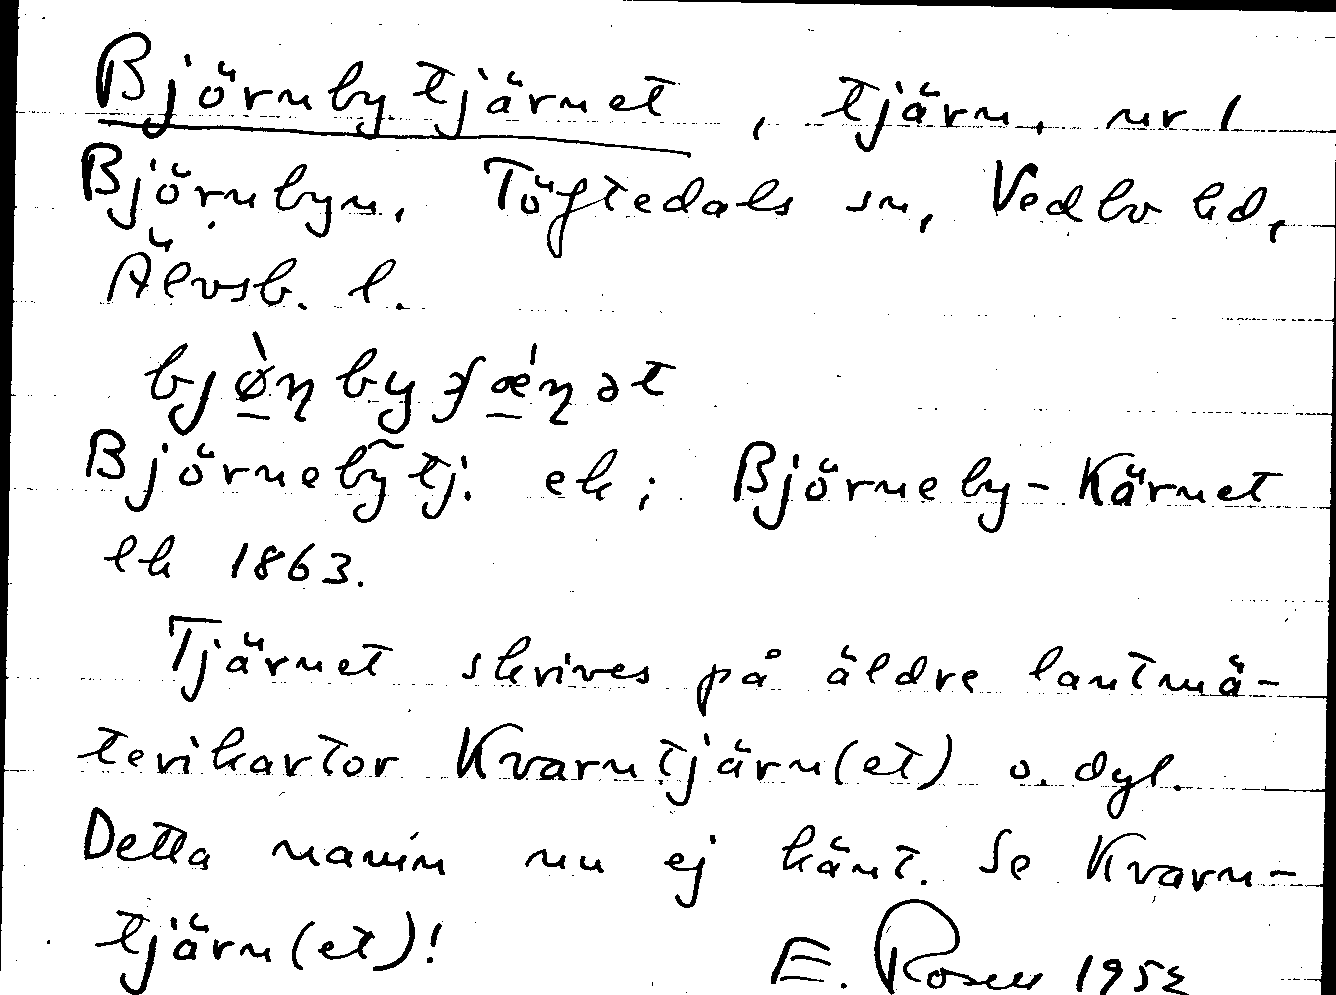 Björnbytjärnet, tjärn, nr 1
Björnbyn, Töftedals sn, Vedbo hd,
Älvsb. l.
bjø̀ɳbyʂǽɳət
Björnebỹtj. ek; Björneby-Kärnet
lh 1863.
Tjärnet skrives på äldre lantmä-
terikartor Kvarntjärn(et) o. dyl.
Detta namn nu ej känt. Se Kvarn-
tjärn(et)!
E. Rosen 1952